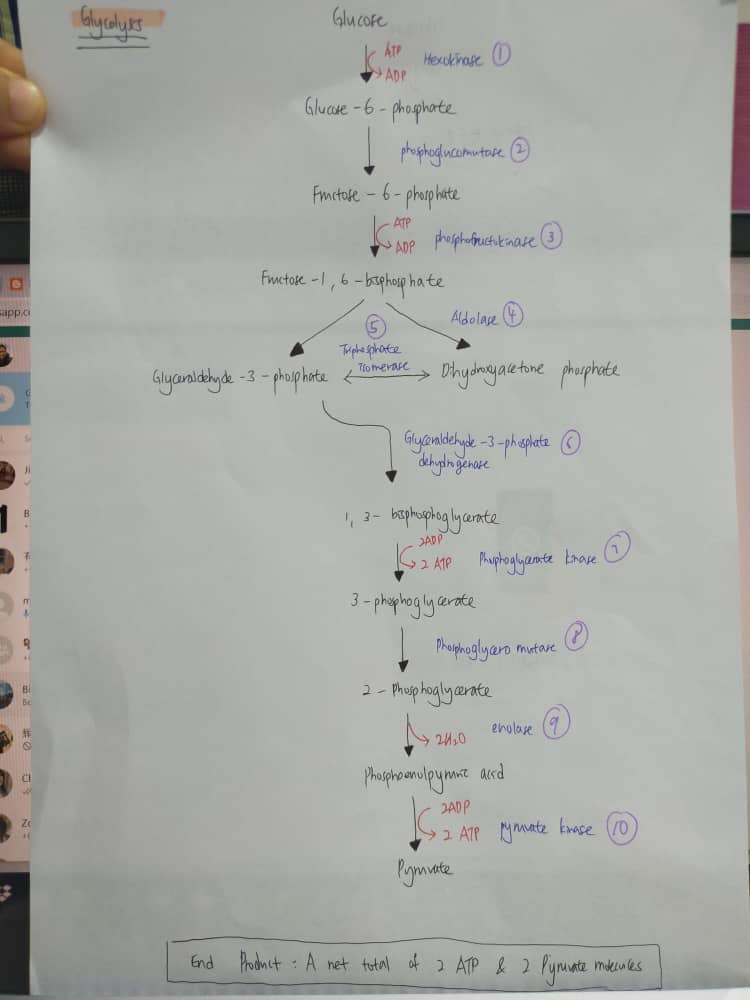 Glycolysis
Glucose
ATP
ADP
Hexokinase 1
Glucose - 6 - phosphate
phosphoglucomutase 2
Fructose - 6 - phosphate
ATP
ADP
phosphofructokinase 3
Fructose - 1, 6 - bisphosphate
Aldolase 4
5
Triphosphate
Isomerase
Glyceraldehyde - 3 - phosphate
Dihydroxyacetone phosphate
Glyceraldehyde - 3 - phosphate 6
dehydrogenase
1, 3 - bisphosphoglycerate
2ADP
2 ATP
Phosphoglycerate kinase 7
3 - phosphoglycerate
Phosphoglycero mutase 8
2 - Phosphoglycerate
2H2O
enolase 9
Phosphoenolpyruvic acid
2ADP
2 ATP
pyruvate kinase 10
Pyruvate
End Product : A net total of 2 ATP & 2 Pyruvate molecules